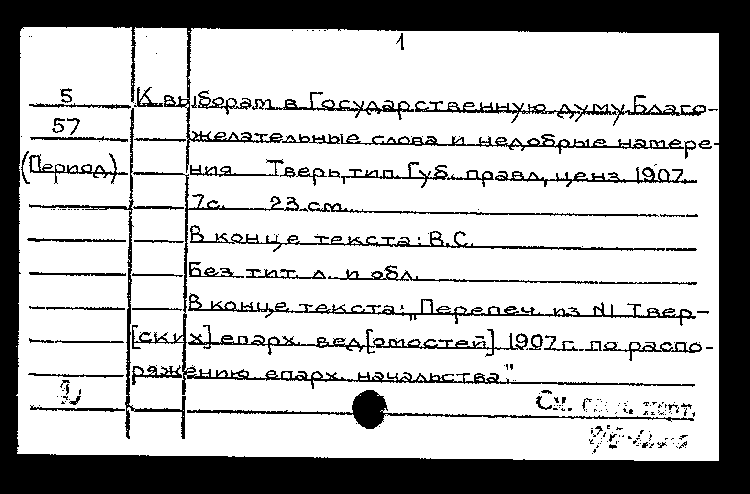 1
5 К выборам в Государственную думу Благо-
57 желательные слова и недобрые намере-
(Период.) ния Тверь, тип. Губ. правл, ценз. 1907.
7с. 23 см.
В конце текста: В.С.
Без тит. л. и обл.
В конце текста: „Перепеч. из №1 Твер-
[ских] епарх. вед[омостей] 1907 г. по распо-
ряжению епарх. начальства".
См.